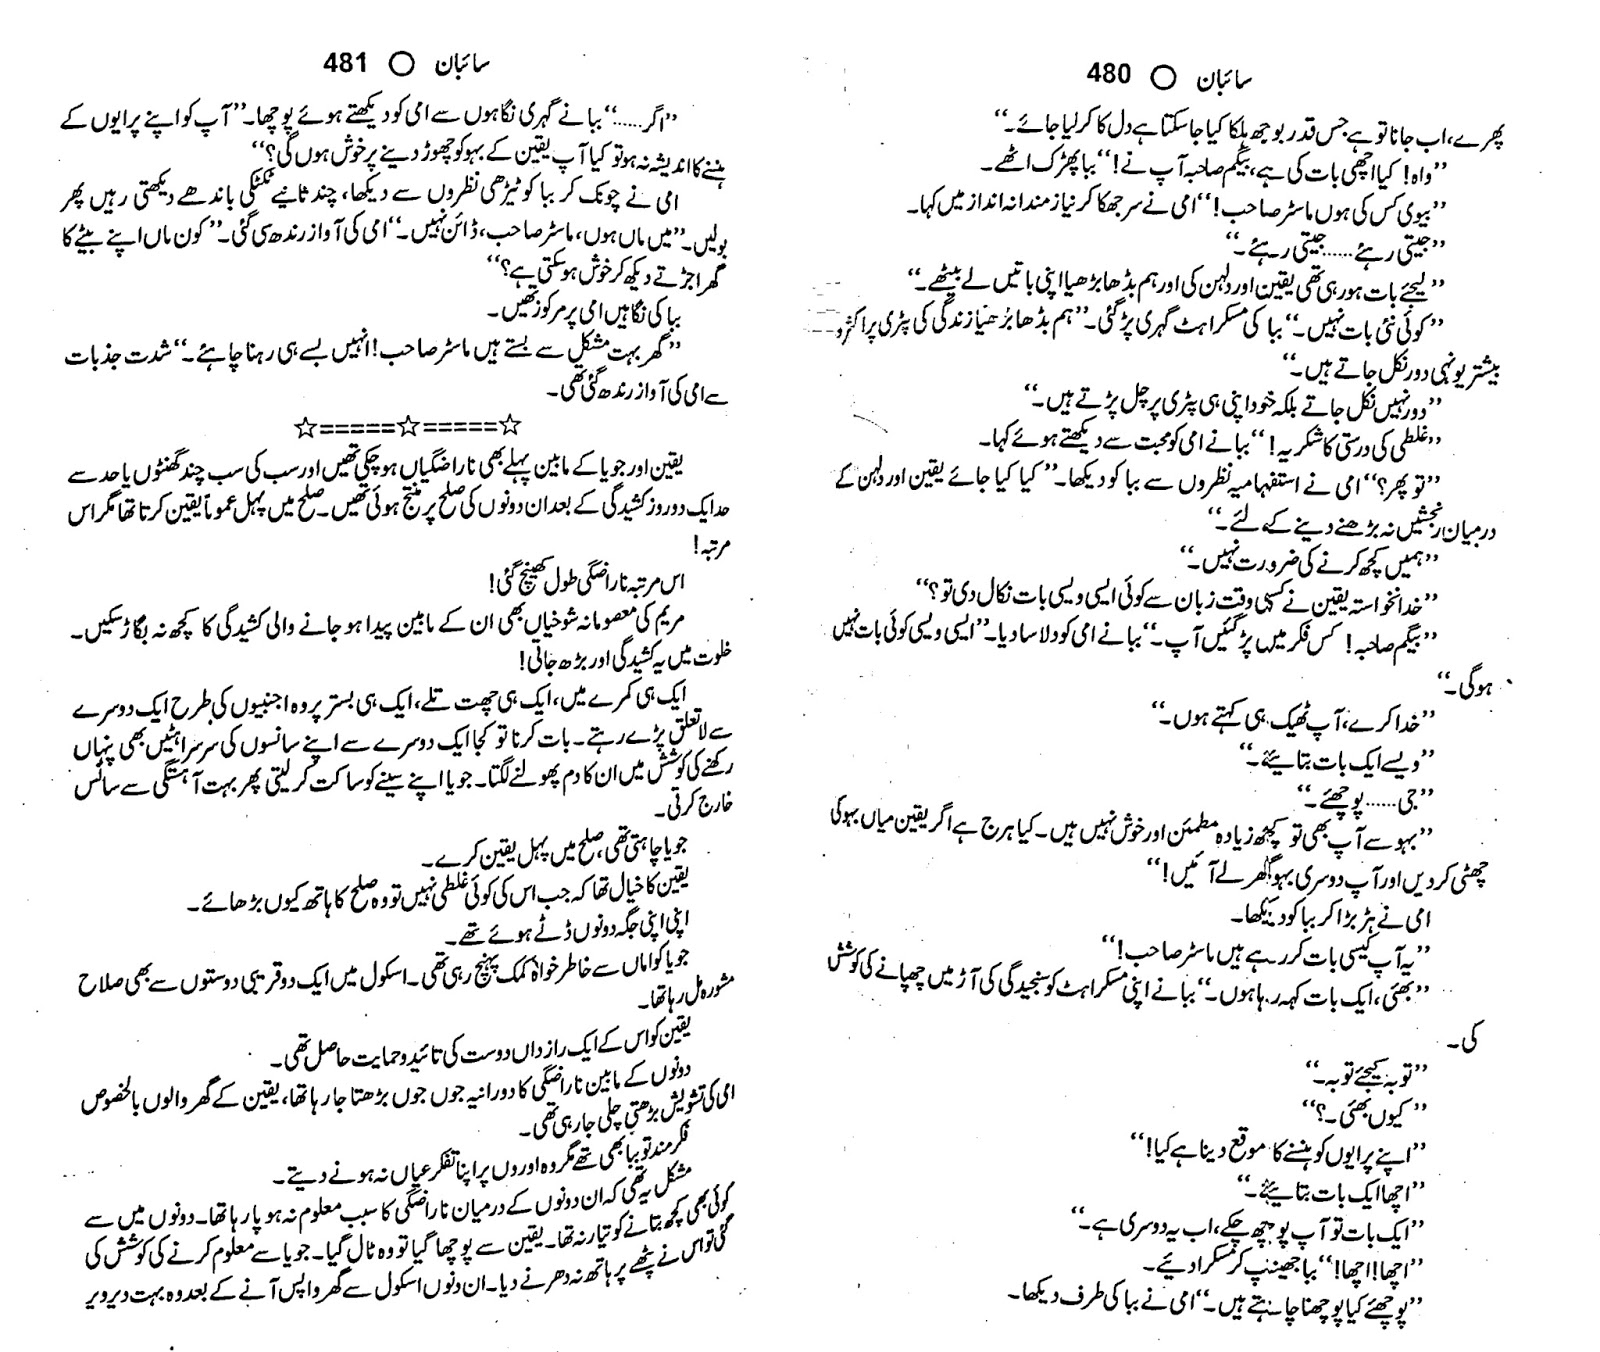 سائبان ○ 480
پھرے، اب جانا تو ہے جس قدر بوجھ ہلکا کیا جا سکتا ہے دل کا کر لیا جائے۔‘‘
’’واہ! کیا اچھی بات کی ہے، بیگم صاحبہ آپ نے!‘‘ ببا پھڑک اٹھے۔
’’بیوی کس کی ہوں ماسٹر صاحب!‘‘ امی نے سر جھکا کر نیاز مندانہ انداز میں کہا۔
’’جیتی رہئے......جیتی رہئے۔‘‘
’’لیجئے بات ہو رہی تھی یقین اور دلہن کی اور ہم بڈھا بڑھیا اپنی باتیں لے بیٹھے۔‘‘
’’کوئی نئی بات نہیں۔‘‘ ببا کی مسکراہٹ گہری پڑ گئی۔ ’’ہم بڈھا بڑھیا زندگی کی پٹڑی پر اکثر و
بیشتر یونہی دور نکل جاتے ہیں۔‘‘
’’دور نہیں نکل جاتے بلکہ خود اپنی ہی پٹڑی پر چل پڑتے ہیں۔‘‘
’’غلطی کی درستی کا شکریہ!‘‘ ببا نے امی کو محبت سے دیکھتے ہوئے کہا۔
’’تو پھر؟‘‘ امی نے استفہامیہ نظروں سے ببا کو دیکھا۔ ’’کیا کیا جائے یقین اور دلہن کے
درمیان رنجشیں نہ بڑھنے دینے کے لئے۔‘‘
’’ہمیں کچھ کرنے کی ضرورت نہیں۔‘‘
’’خدانخواستہ یقین نے کسی وقت زبان سے کوئی ایسی ویسی بات نکال دی تو؟‘‘
’’بیگم صاحبہ! کس فکر میں پڑ گئیں آپ۔‘‘ ببا نے امی کو دلاسا دیا۔ ’’ایسی ویسی کوئی بات نہیں
ہو گی۔‘‘
’’خدا کرے، آپ ٹھیک ہی کہتے ہوں۔‘‘
’’ویسے ایک بات بتائیے۔‘‘
’’جی......پوچھئے۔‘‘
’’بہو سے آپ بھی تو کچھ زیادہ مطمئن اور خوش نہیں ہیں۔ کیا ہرج ہے اگر یقین میاں بہو کی
چھٹی کر دیں اور آپ دوسری بہو گھر لے آئیں!‘‘
امی نے ہڑبڑا کر ببا کو دیکھا۔
’’یہ آپ کیسی بات کر رہے ہیں ماسٹر صاحب!‘‘
’’بھئی، ایک بات کہہ رہا ہوں۔‘‘ ببا نے اپنی مسکراہٹ کو سنجیدگی کی آڑ میں چھپانے کی کوشش
کی۔
’’توبہ کیجئے توبہ۔‘‘
’’کیوں بھئی۔؟‘‘
’’اپنے پرایوں کو ہنسنے کا موقع دینا ہے کیا!‘‘
’’اچھا ایک بات بتائیے۔‘‘
’’ایک بات تو آپ پوچھ چکے، اب یہ دوسری ہے۔‘‘
’’اچھا! اچھا!‘‘ ببا جھینپ کر مسکرا دیئے۔
’’پوچھئے کیا پوچھنا چاہتے ہیں۔‘‘ امی نے ببا کی طرف دیکھا۔
سائبان ○ 481
’’اگر......‘‘ ببا نے گہری نگاہوں سے امی کو دیکھتے ہوئے پوچھا۔ ’’آپ کو اپنے پرایوں کے
ہنسنے کا اندیشہ نہ ہو تو کیا آپ یقین کے بہو کو چھوڑ دینے پر خوش ہوں گی؟‘‘
امی نے چونک کر ببا کو ٹیڑھی نظروں سے دیکھا، چند ثانیے ٹکٹکی باندھے دیکھتی رہیں پھر
بولیں۔ ’’میں ماں ہوں، ماسٹر صاحب، ڈائن نہیں۔‘‘ امی کی آواز رندھ سی گئی۔ ’’کون ماں اپنے بیٹے کا
گھر اجڑتے دیکھ کر خوش ہو سکتی ہے؟‘‘
ببا کی نگاہیں امی پر مرکوز تھیں۔
’’گھر بہت مشکل سے بستے ہیں ماسٹر صاحب! انہیں بسے ہی رہنا چاہئے۔‘‘ شدت جذبات
سے امی کی آواز رندھ گئی تھی۔
☆=====☆=====☆
یقین اور جویا کے مابین پہلے بھی ناراضگیاں ہو چکی تھیں اور سب کی سب چند گھنٹوں یا حد سے
حد ایک دو روز کشیدگی کے بعد ان دونوں کی صلح پر منتج ہوئی تھیں۔ صلح میں پہل عموماً یقین کرتا تھا مگر اس
مرتبہ!
اس مرتبہ ناراضگی طول کھینچ گئی!
مریم کی معصومانہ شوخیاں بھی ان کے مابین پیدا ہو جانے والی کشیدگی کا کچھ نہ بگاڑ سکیں۔
خلوت میں یہ کشیدگی اور بڑھ جاتی!
ایک ہی کمرے میں، ایک ہی چھت تلے، ایک ہی بستر پر وہ اجنبیوں کی طرح ایک دوسرے
سے لاتعلق پڑے رہتے۔ بات کرنا تو کجا ایک دوسرے سے اپنے سانسوں کی سرسراہٹیں بھی پنہاں
رکھنے کی کوشش میں ان کا دم پھولنے لگتا۔ جویا اپنے سینے کو ساکت کر لیتی پھر بہت آہستگی سے سانس
خارج کرتی۔
جویا چاہتی تھی، صلح میں پہل یقین کرے۔
یقین کا خیال تھا کہ جب اس کی کوئی غلطی نہیں تو وہ صلح کا ہاتھ کیوں بڑھائے۔
اپنی اپنی جگہ دونوں ڈٹے ہوئے تھے۔
جویا کو اماں سے خاطر خواہ کمک پہنچ رہی تھی۔ اسکول میں ایک دو قریبی دوستوں سے بھی صلاح
مشورہ مل رہا تھا۔
یقین کو اس کے ایک رازداں دوست کی تائید و حمایت حاصل تھی۔
دونوں کے مابین ناراضگی کا دورانیہ جوں جوں بڑھتا جا رہا تھا، یقین کے گھر والوں بالخصوص
امی کی تشویش بڑھتی چلی جا رہی تھی۔
فکرمند تو ببا بھی تھے مگر وہ اوروں پر اپنا تفکر عیاں نہ ہونے دیتے۔
مشکل یہ تھی کہ ان دونوں کے درمیان ناراضگی کا سبب معلوم نہ ہو پا رہا تھا۔ دونوں میں سے
کوئی بھی کچھ بتانے کو تیار نہ تھا۔ یقین سے پوچھا گیا تو وہ ٹال گیا۔ جویا سے معلوم کرنے کی کوشش کی
گئی تو اس نے پٹھے پر ہاتھ نہ دھرنے دیا۔ ان دنوں اسکول سے گھر واپس آنے کے بعد وہ بہت دیر دیر